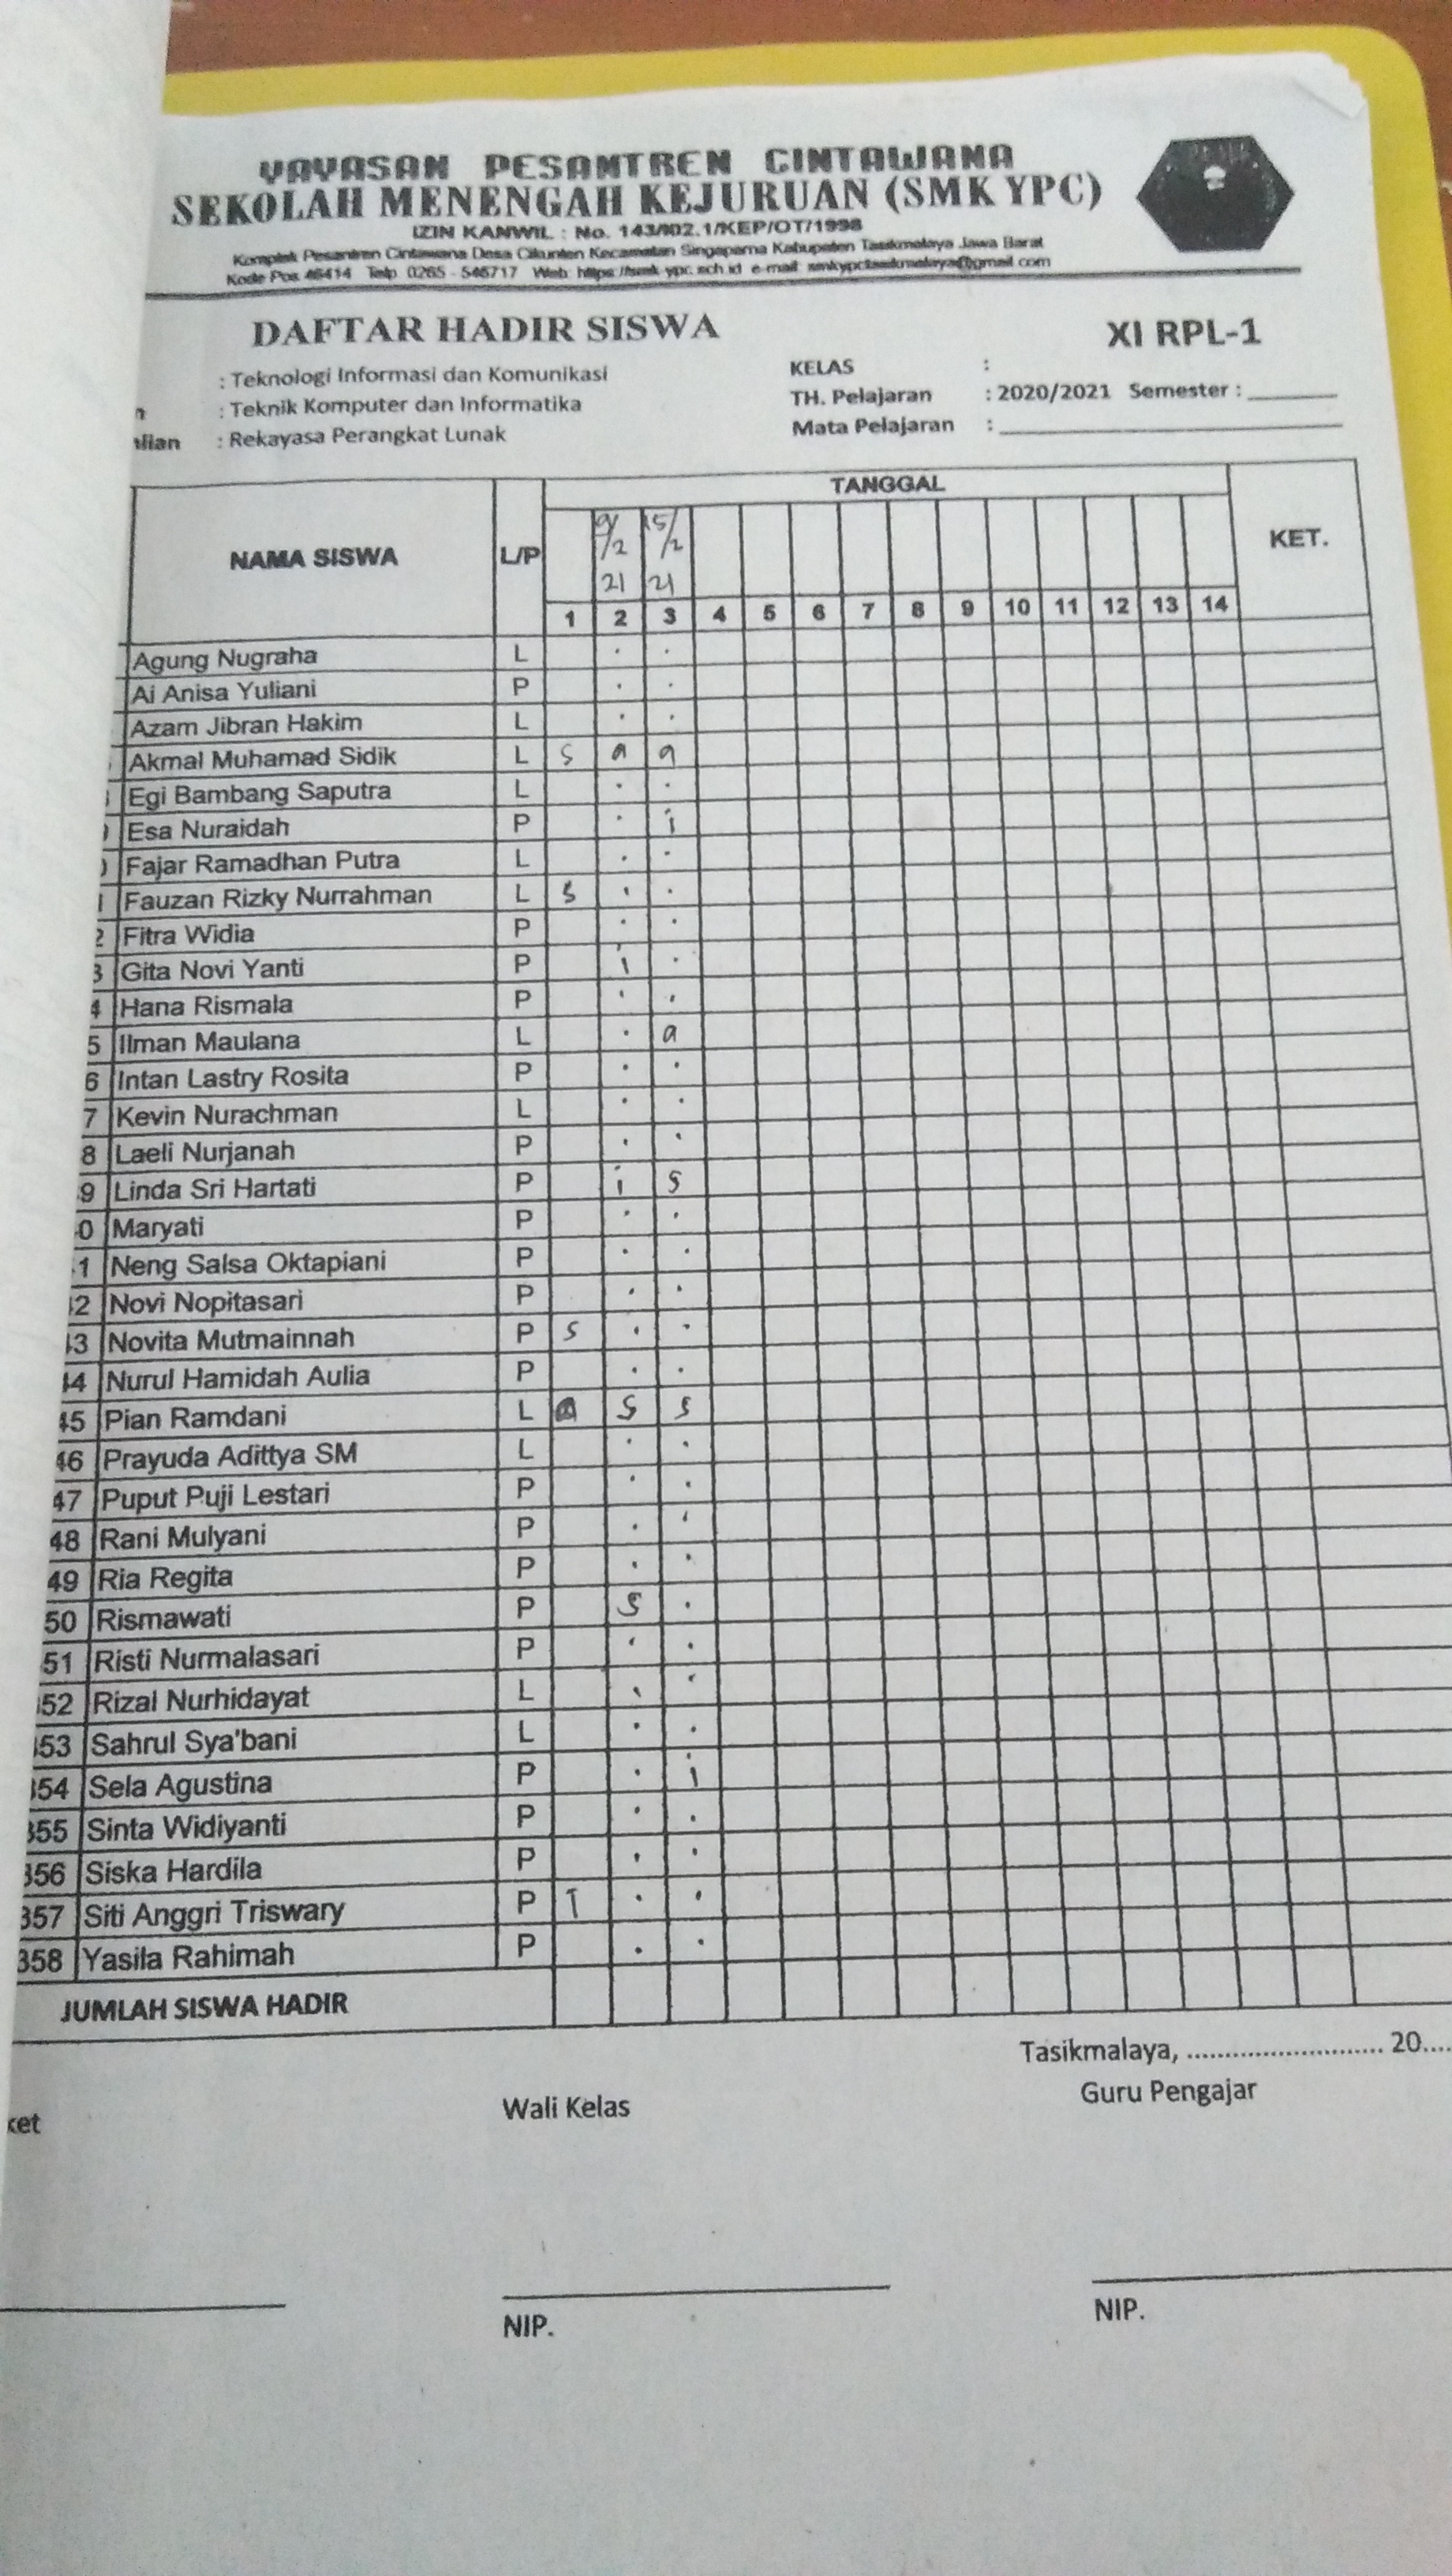 YAYASAN PESANTREN CINTAWANA
SEKOLAH MENENGAH KEJURUAN (SMK YPC)
IZIN KANWIL : No. 143/I02.1/KEP/OT/1998
Komplek Pesantren Cintawana Desa Cikunten Kecamatan Singaparna Kabupaten Tasikmalaya Jawa Barat
Kode Pos 46414 Telp. 0265 - 546717 Web: https://smk-ypc.sch.id e-mail: smkypctasikmalaya@gmail.com
DAFTAR HADIR SISWA XI RPL-1
: Teknologi Informasi dan Komunikasi KELAS :
: Teknik Komputer dan Informatika TH. Pelajaran : 2020/2021 Semester :
: Rekayasa Perangkat Lunak Mata Pelajaran :
NAMA SISWA L/P TANGGAL KET.
9/2 21 15/2 21
1 2 3 4 5 6 7 8 9 10 11 12 13 14
Agung Nugraha L . .
Ai Anisa Yuliani P . .
Azam Jibran Hakim L . .
Akmal Muhamad Sidik L s a a
Egi Bambang Saputra L . .
Esa Nuraidah P . i
Fajar Ramadhan Putra L . .
Fauzan Rizky Nurrahman L s . .
2 Fitra Widia P . .
3 Gita Novi Yanti P i .
4 Hana Rismala P . .
5 Ilman Maulana L . a
6 Intan Lastry Rosita P . .
7 Kevin Nurachman L . .
8 Laeli Nurjanah P . .
9 Linda Sri Hartati P i s
0 Maryati P . .
1 Neng Salsa Oktapiani P . .
2 Novi Nopitasari P . .
3 Novita Mutmainnah P s . .
4 Nurul Hamidah Aulia P . .
45 Pian Ramdani L a s s
46 Prayuda Adittya SM L . .
47 Puput Puji Lestari P . .
48 Rani Mulyani P . .
49 Ria Regita P . .
50 Rismawati P s .
51 Risti Nurmalasari P . .
52 Rizal Nurhidayat L . .
53 Sahrul Sya'bani L . .
354 Sela Agustina P . i
355 Sinta Widiyanti P . .
356 Siska Hardila P . .
357 Siti Anggri Triswary P I . .
358 Yasila Rahimah P . .
JUMLAH SISWA HADIR
Tasikmalaya, .......................... 20....
Wali Kelas Guru Pengajar
NIP. NIP.